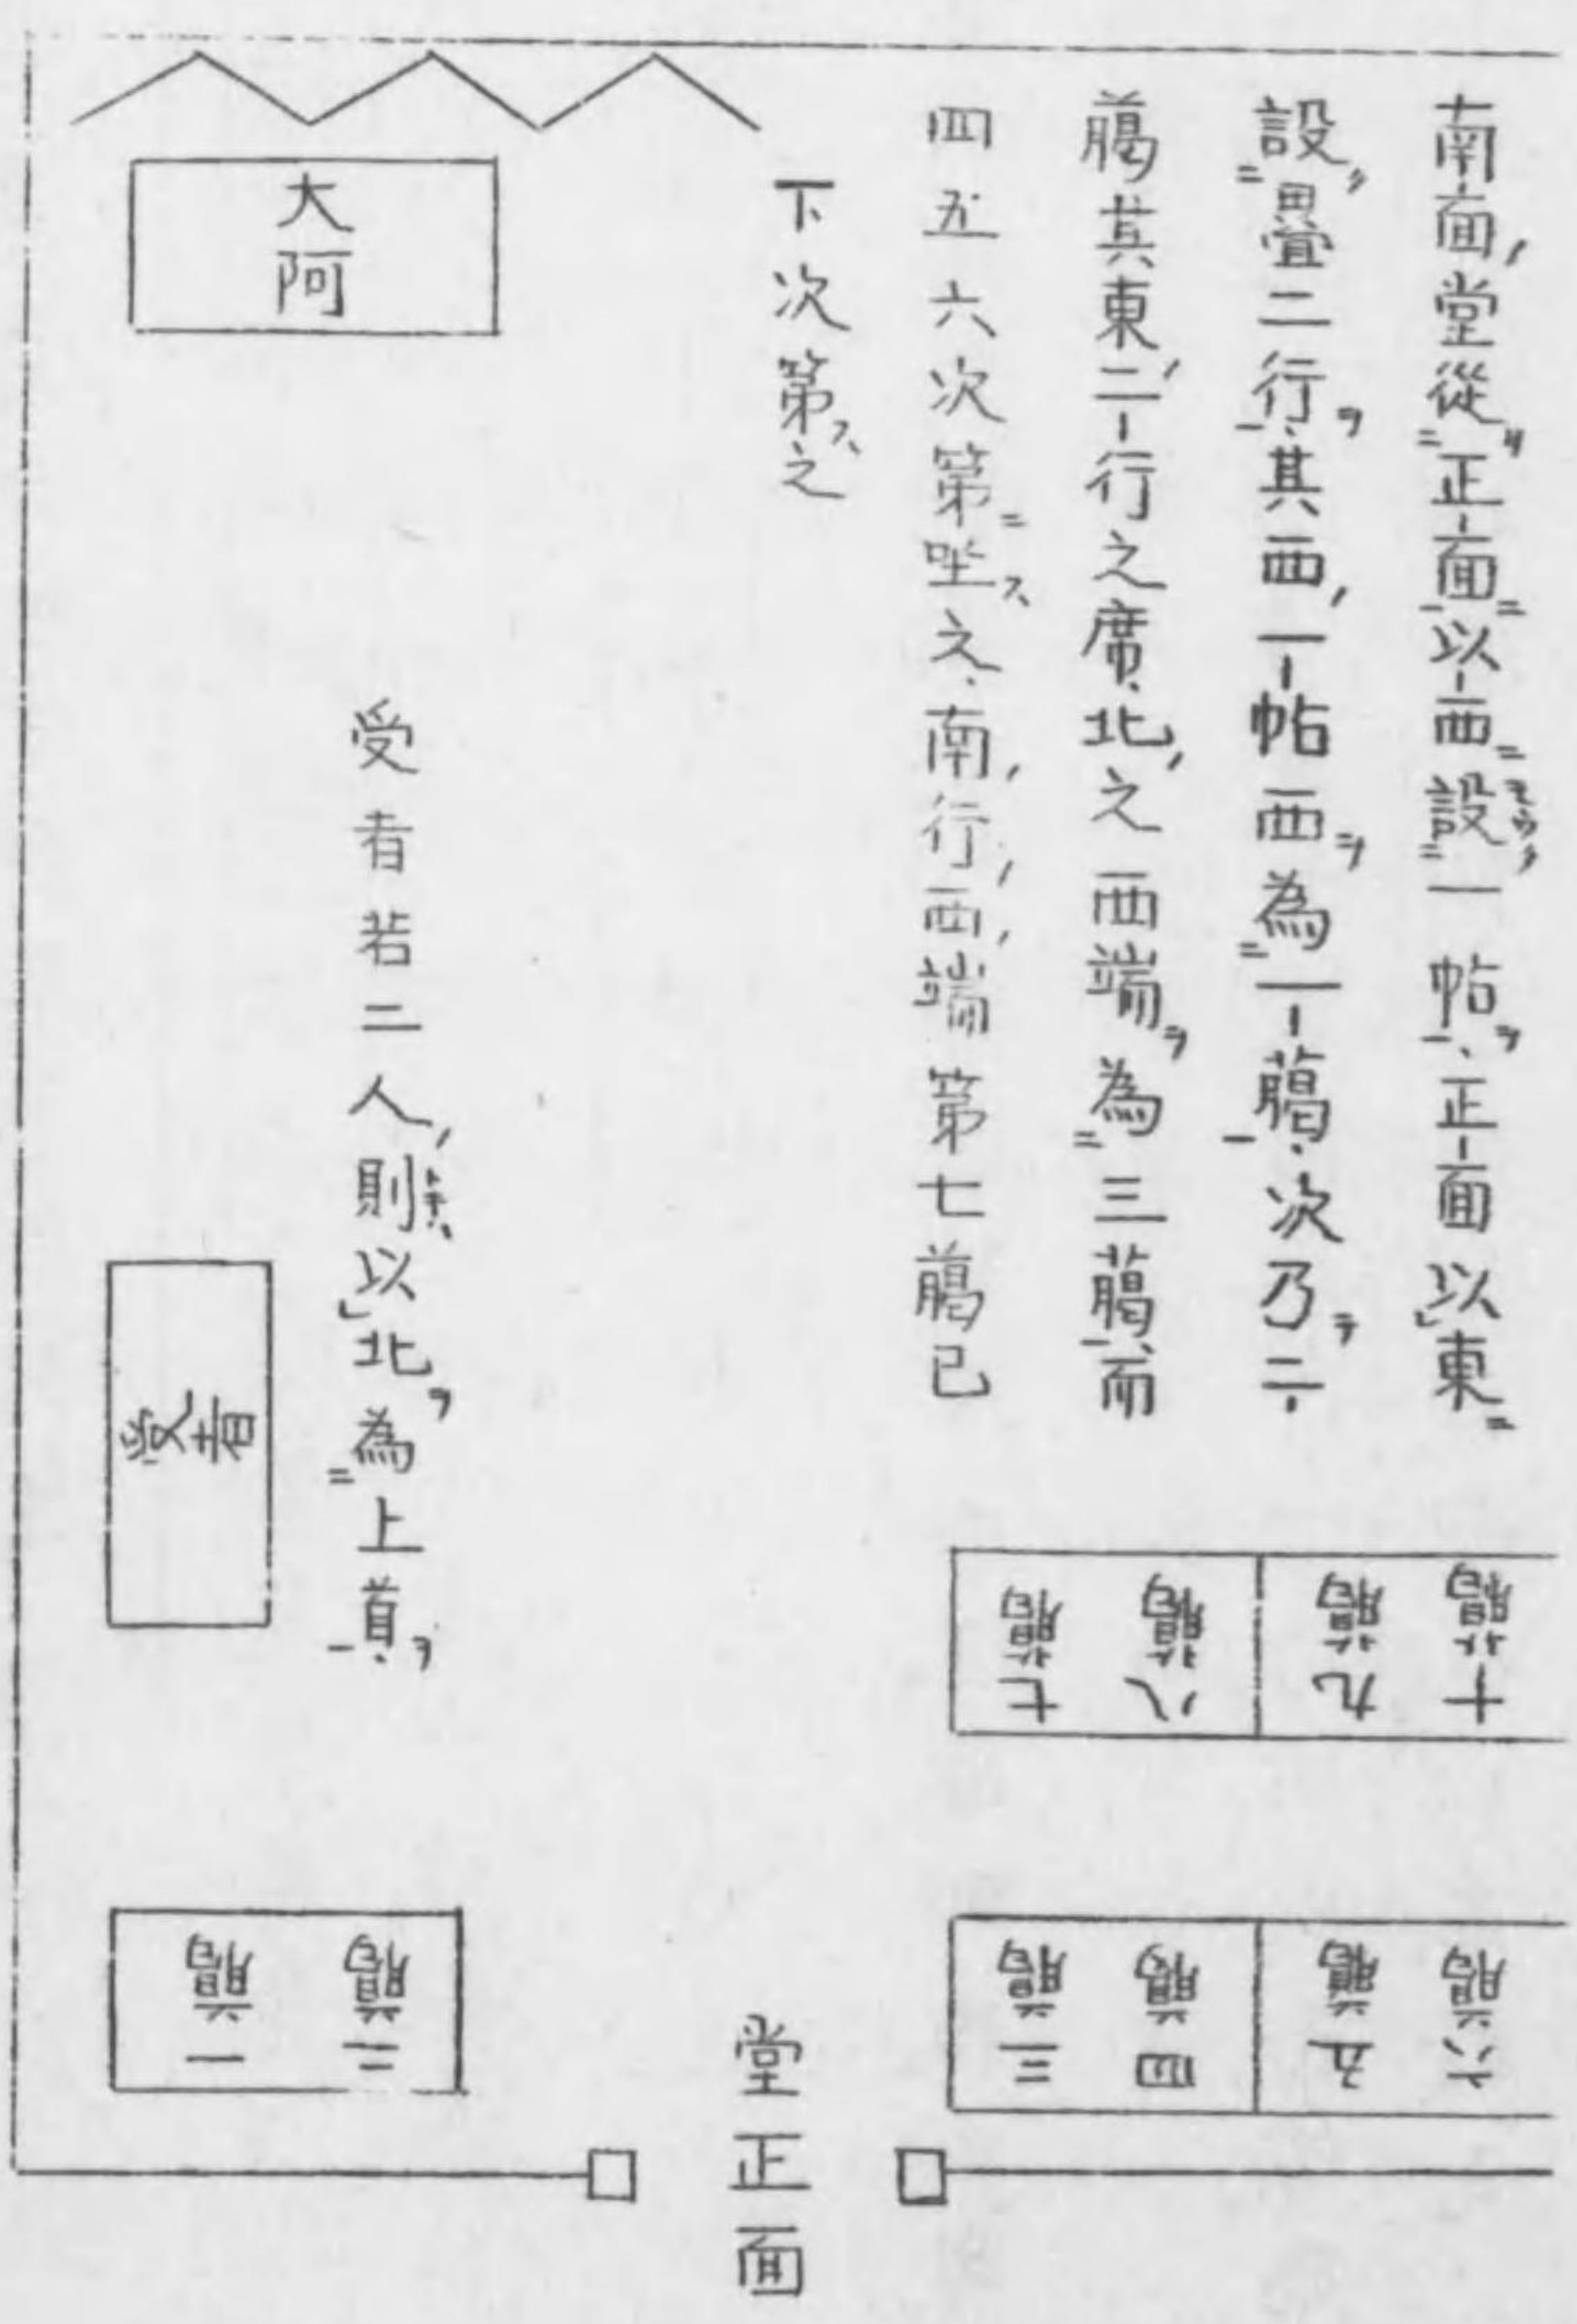 南面堂從正面以西設一帖正面以東
設疊二行其西一帖西為一﨟次乃二
﨟其東二行之席北之西端為三﨟而
四五六次第坐之南行西端第七﨟已
下次第之
大阿
受者若二人則以北為上首
受者
七﨟
八﨟
九﨟
十﨟
一﨟
二﨟
三﨟
四﨟
五﨟
六﨟
堂正面